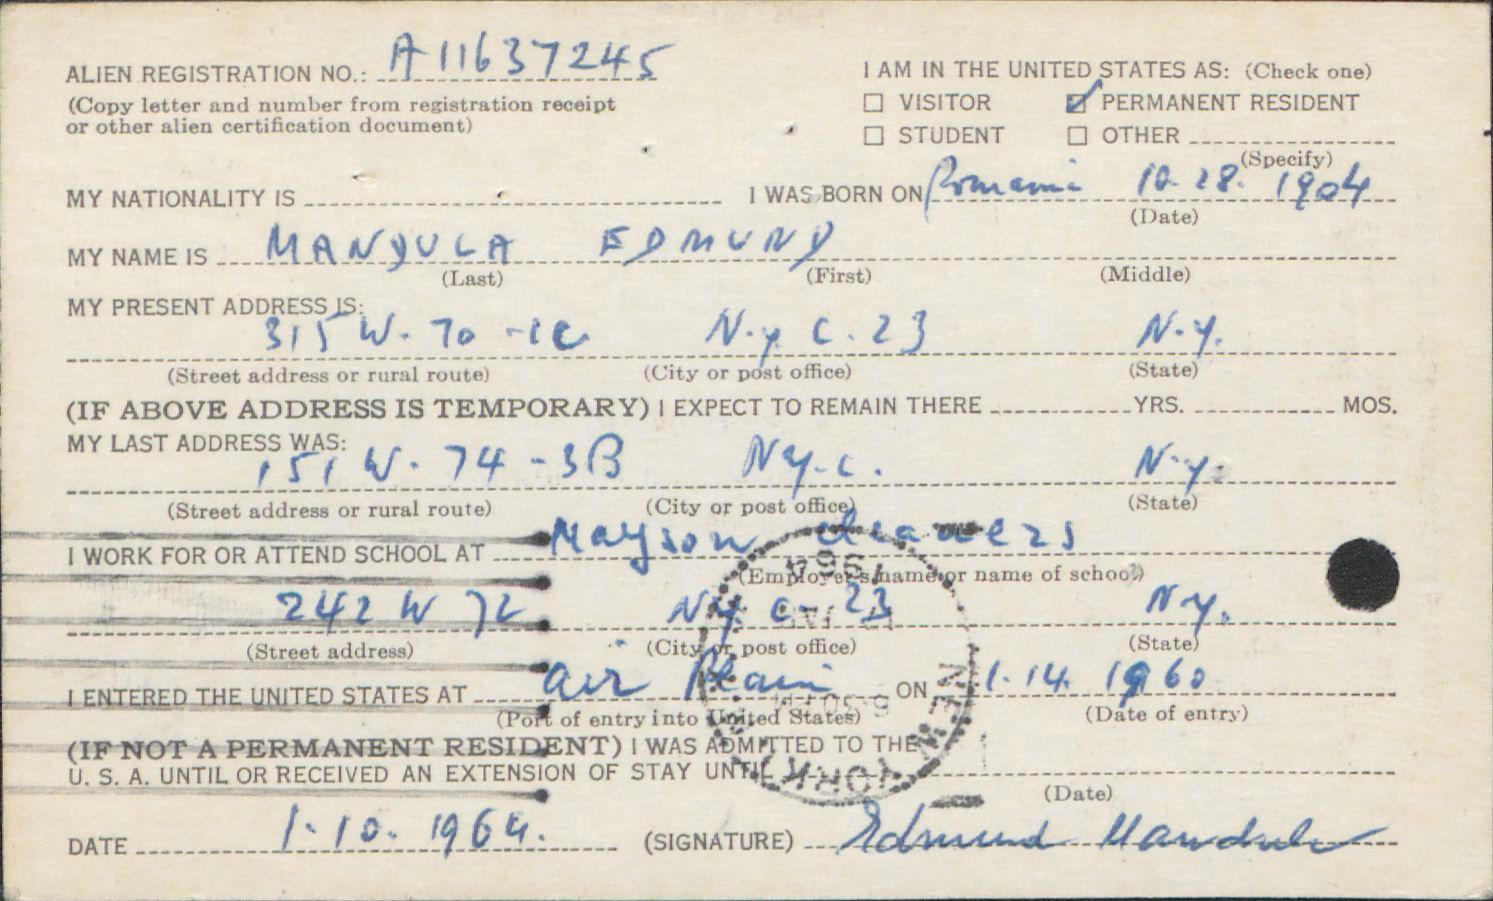 ALIEN REGISTRATION NO.: A11637245
(Copy letter and number from registration receipt
or other alien certification document)
I AM IN THE UNITED STATES AS: (Check one)
☐ VISITOR ☑ PERMANENT RESIDENT
☐ STUDENT ☐ OTHER
(Specify)
MY NATIONALITY IS I WAS BORN ON Romania 10-28. 1904
(Date)
MY NAME IS MANDULA EDMUND
(Last) (First) (Middle)
MY PRESENT ADDRESS IS:
315 W. 70 -1C N.y C. 23 N.y.
(Street address or rural route) (City or post office) (State)
(IF ABOVE ADDRESS IS TEMPORARY) I EXPECT TO REMAIN THERE YRS. MOS.
MY LAST ADDRESS WAS:
151 W. 74 -3B Ny.c. N.y.
(Street address or rural route) (City or post office) (State)
I WORK FOR OR ATTEND SCHOOL AT Mayson
(Employer's name or name of school)
242 W 72 Ny. c. 23 Ny.
(Street address) (City or post office) (State)
I ENTERED THE UNITED STATES AT air Plain ON 1.14. 1960
(Port of entry into United States) (Date of entry)
(IF NOT A PERMANENT RESIDENT) I WAS ADMITTED TO THE
U. S. A. UNTIL OR RECEIVED AN EXTENSION OF STAY UNTIL
(Date)
DATE 1.10. 1964. (SIGNATURE) Edmund Mandula
NEW YORK